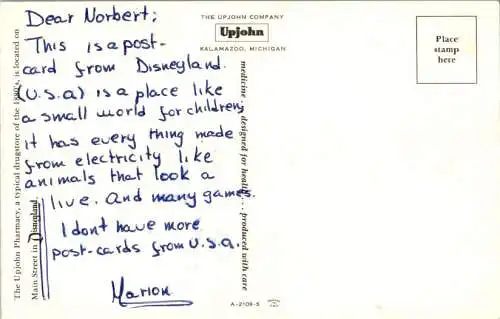 Dear Norbert;
This is a post-
card from Disneyland.
(U.S.a) is a place like
a small world for children;
it has every thing made
from electricity like
animals that look a
live. And many games.
I dont have more
post-cards from U.S.a.
Marion
The Upjohn Pharmacy, a typical drugstore of the 1880's, is located on
Main Street in Disneyland.
THE UPJOHN COMPANY
Upjohn
KALAMAZOO, MICHIGAN
medicine . . . designed for health . . . produced with care
A-2109-5
Place
stamp
here